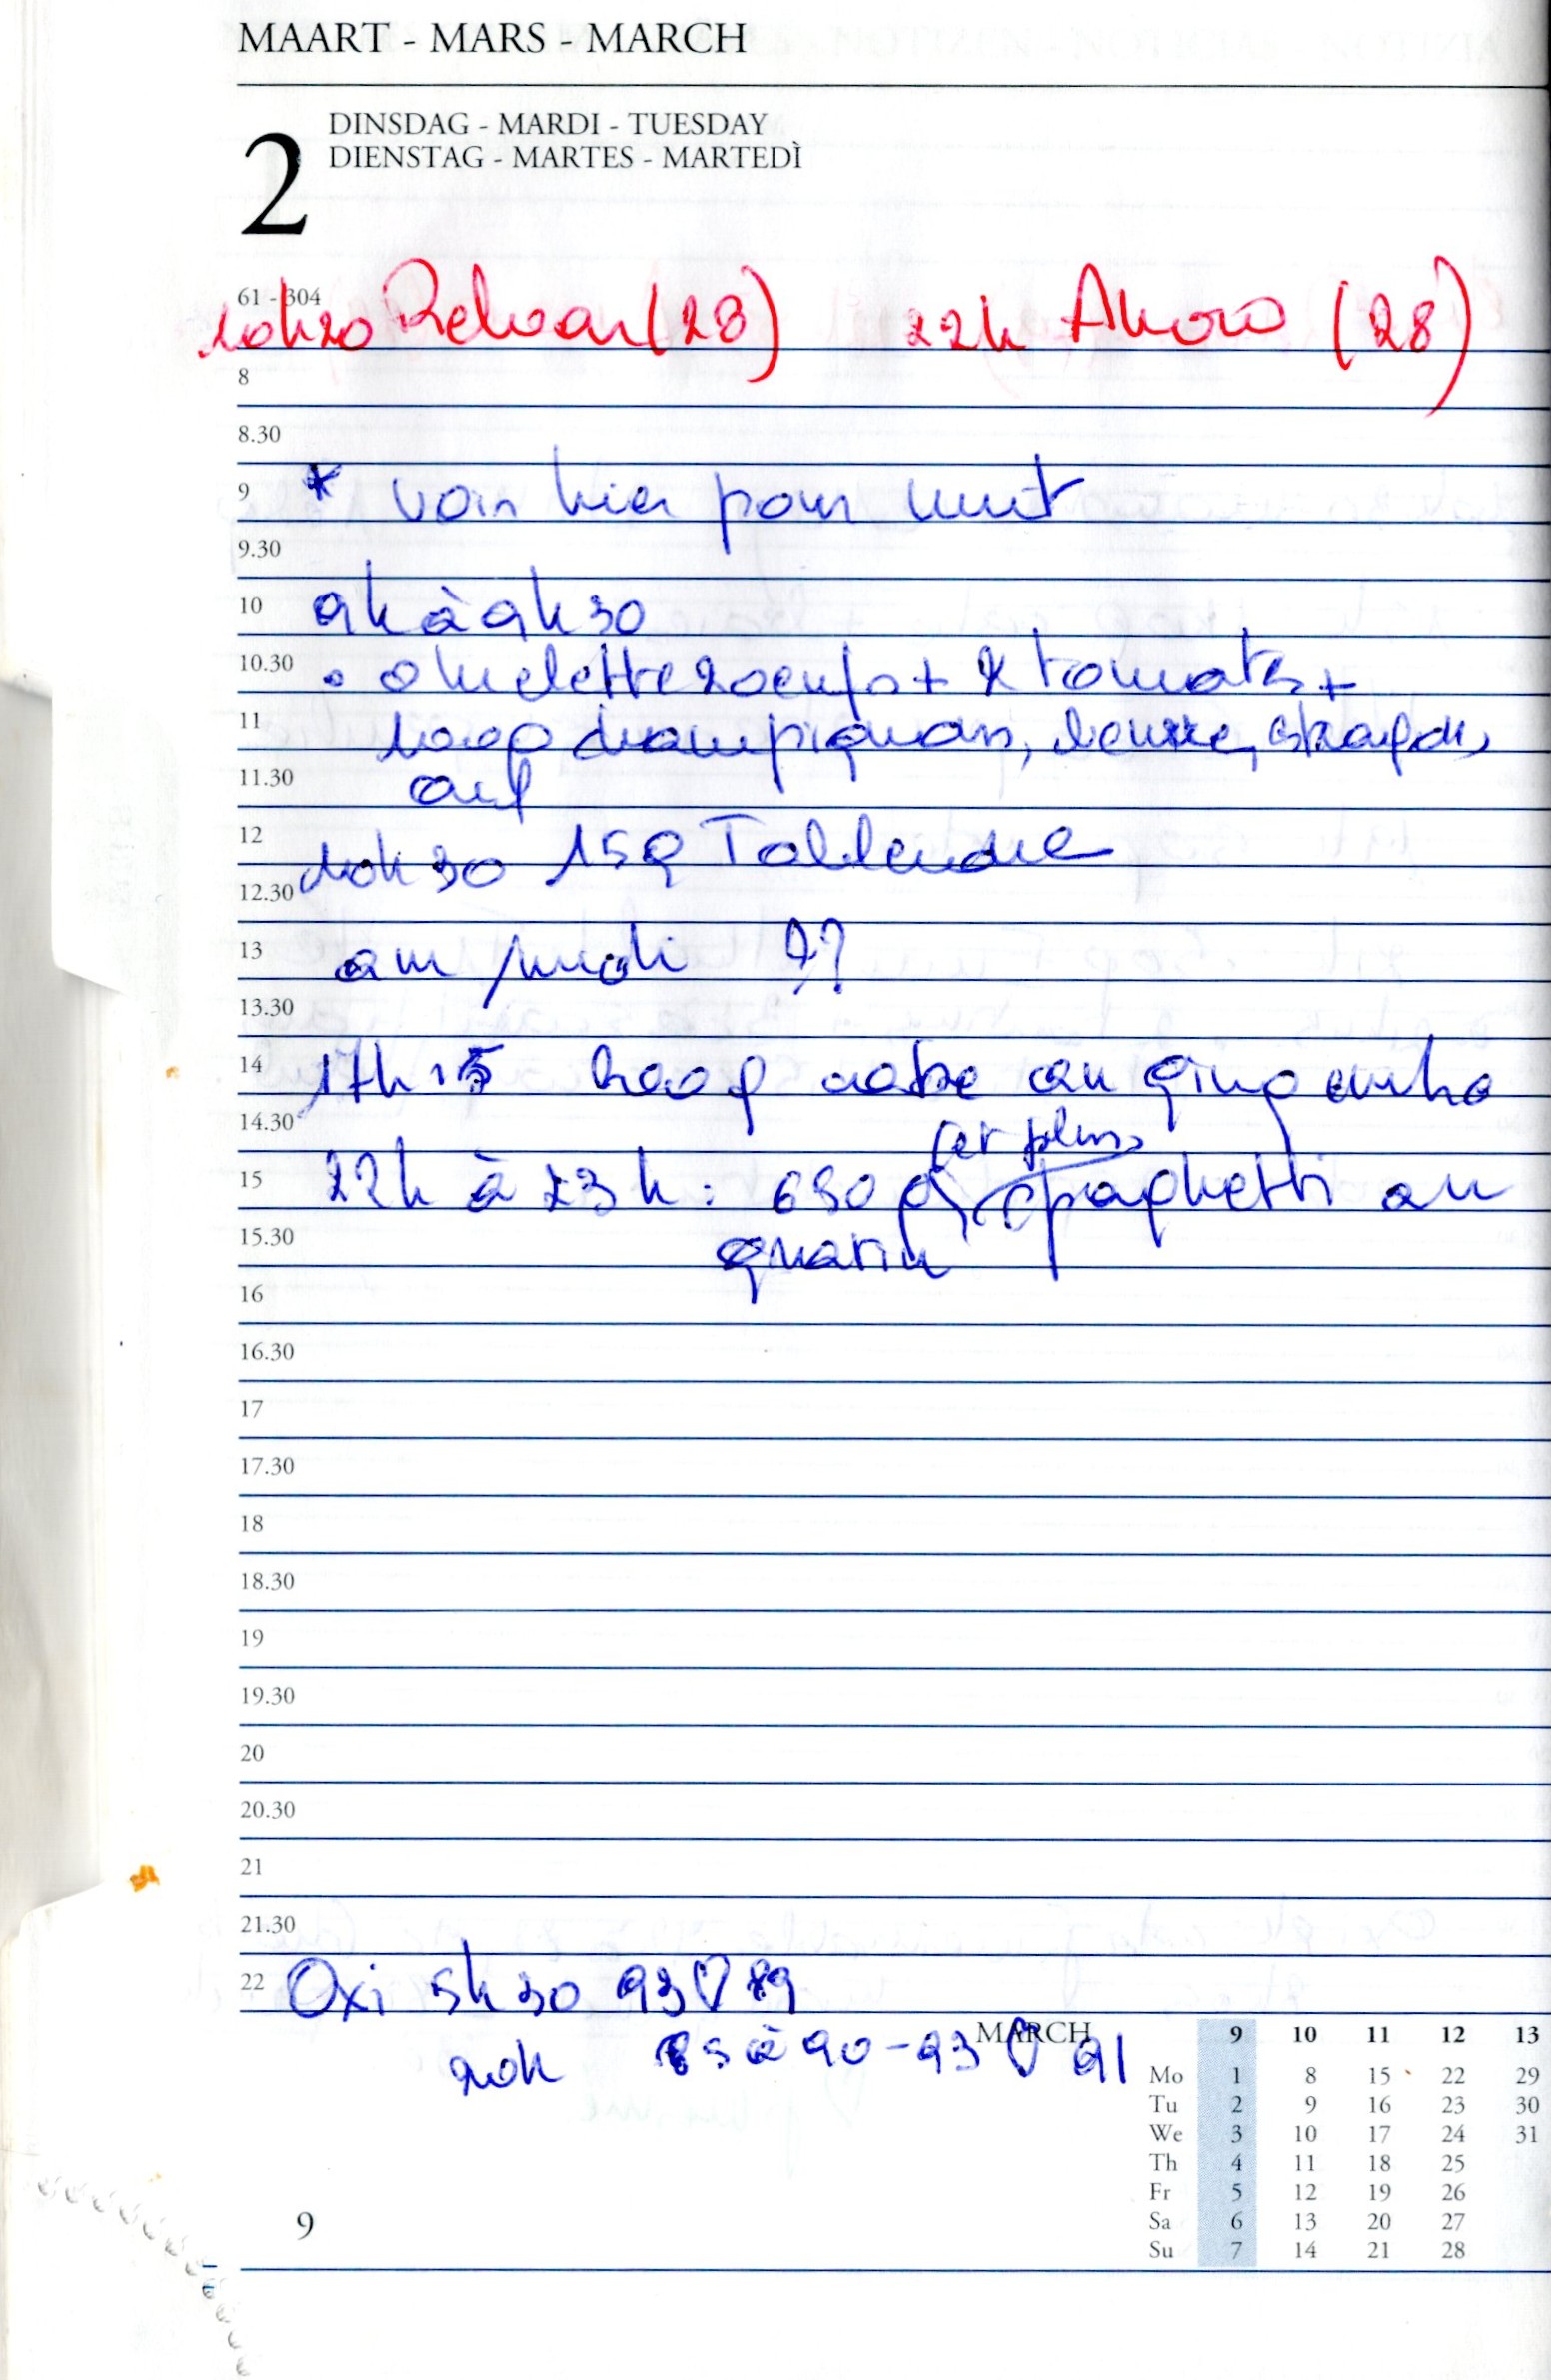 MAART - MARS - MARCH
2
DINSDAG - MARDI - TUESDAY
DIENSTAG - MARTES - MARTEDÌ
61 - 304
10h20 Relvar (28) 22h Akoro (28)
8
8.30
9 * voir hier pour nuit
9.30
10 9h à 9h30
10.30 • omelette 2 oeufs + 2 tomates +
11 100g champignons, beurre,
11.30
12 10h30 15g
12.30
13 am/midi ??
13.30
14 17h15 200g au gingembre
14.30 (et plus)
15 22h à 23h : 650g spaghetti au
15.30
16
16.30
17
17.30
18
18.30
19
19.30
20
20.30
21
21.30
22 Oxi 5h30 93 ♡ 89
20h 85 à 90-93 ♡ 91
MARCH 9 10 11 12 13
Mo 1 8 15 22 29
Tu 2 9 16 23 30
We 3 10 17 24 31
Th 4 11 18 25
Fr 5 12 19 26
Sa 6 13 20 27
Su 7 14 21 28
9